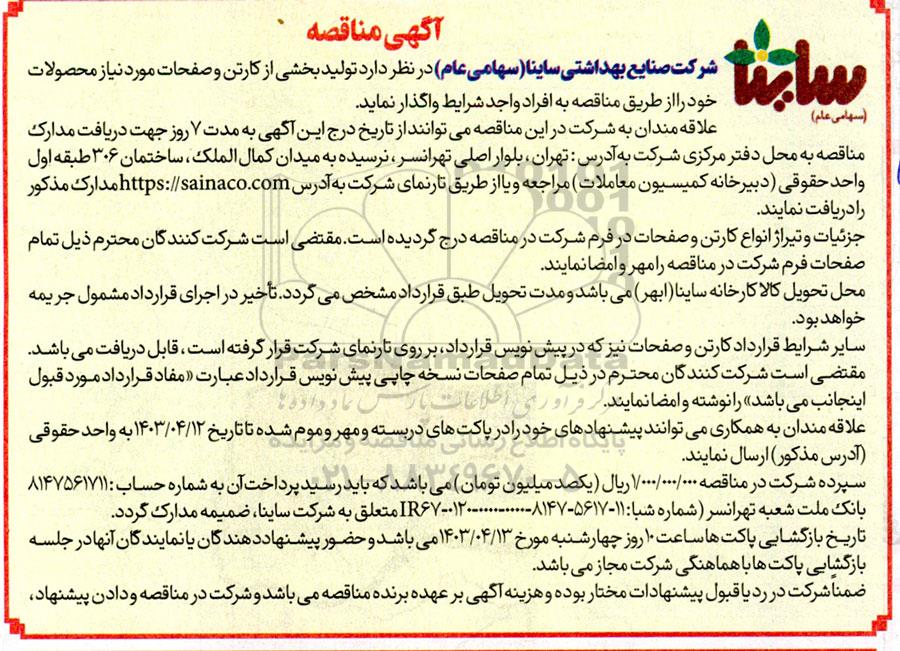 آگهی مناقصه
ساینا
(سهامی عام)
شرکت صنایع بهداشتی ساینا (سهامی عام) در نظر دارد تولید بخشی از کارتن و صفحات مورد نیاز محصولات
خود را از طریق مناقصه به افراد واجد شرایط واگذار نماید.
علاقه مندان به شرکت در این مناقصه می توانند از تاریخ درج این آگهی به مدت ۷ روز جهت دریافت مدارک
مناقصه به محل دفتر مرکزی شرکت به آدرس : تهران ، بلوار اصلی تهرانسر ، نرسیده به میدان کمال الملک ، ساختمان ۳۰۶ طبقه اول
واحد حقوقی (دبیرخانه کمیسیون معاملات) مراجعه و یا از طریق تارنمای شرکت به آدرس https://sainaco.com مدارک مذکور
را دریافت نمایند.
جزئیات و تیراژ انواع کارتن و صفحات در فرم شرکت در مناقصه درج گردیده است. مقتضی است شرکت کنندگان محترم ذیل تمام
صفحات فرم شرکت در مناقصه را مهر و امضا نمایند.
محل تحویل کالا کارخانه ساینا (ابهر) می باشد و مدت تحویل طبق قرارداد مشخص می گردد. تأخیر در اجرای قرارداد مشمول جریمه
خواهد بود.
سایر شرایط قرارداد کارتن و صفحات نیز که در پیش نویس قرارداد، بر روی تارنمای شرکت قرار گرفته است ، قابل دریافت می باشد.
مقتضی است شرکت کنندگان محترم در ذیل تمام صفحات نسخه چاپی پیش نویس قرارداد عبارت «مفاد قرارداد مورد قبول
اینجانب می باشد» را نوشته و امضا نمایند.
علاقه مندان به همکاری می توانند پیشنهادهای خود را در پاکت های دربسته و مهر و موم شده تا تاریخ ۱۴۰۳/۰۴/۱۲ به واحد حقوقی
(آدرس مذکور) ارسال نمایند.
سپرده شرکت در مناقصه ۱/۰۰۰/۰۰۰/۰۰۰ ریال (یکصد میلیون تومان) می باشد که باید رسید پرداخت آن به شماره حساب : ۸۱۴۷۵۶۱۷۱۱
بانک ملت شعبه تهرانسر (شماره شبا: IR۶۷-۰۱۲۰-۰۰۰۰-۰۰۰۰-۸۱۴۷-۵۶۱۷-۱۱ متعلق به شرکت ساینا، ضمیمه مدارک گردد.
تاریخ بازگشایی پاکت ها ساعت ۱۰ روز چهارشنبه مورخ ۱۴۰۳/۰۴/۱۳ می باشد و حضور پیشنهاد دهندگان یا نمایندگان آنها در جلسه
بازگشایی پاکت ها با هماهنگی شرکت مجاز می باشد.
ضمناً شرکت در رد یا قبول پیشنهادات مختار بوده و هزینه آگهی بر عهده برنده مناقصه می باشد و شرکت در مناقصه و دادن پیشنهاد،
پایگاه اطلاع رسانی مناقصه و مزایده
۰۲۱-۸۸۳۴۹۶۷۰-۵